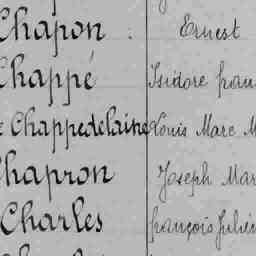 Chapon Ernest
Chappé Isidore fran
Chappedelaine Louis Marc M
Chapron Joseph Mar
Charles françois Julien